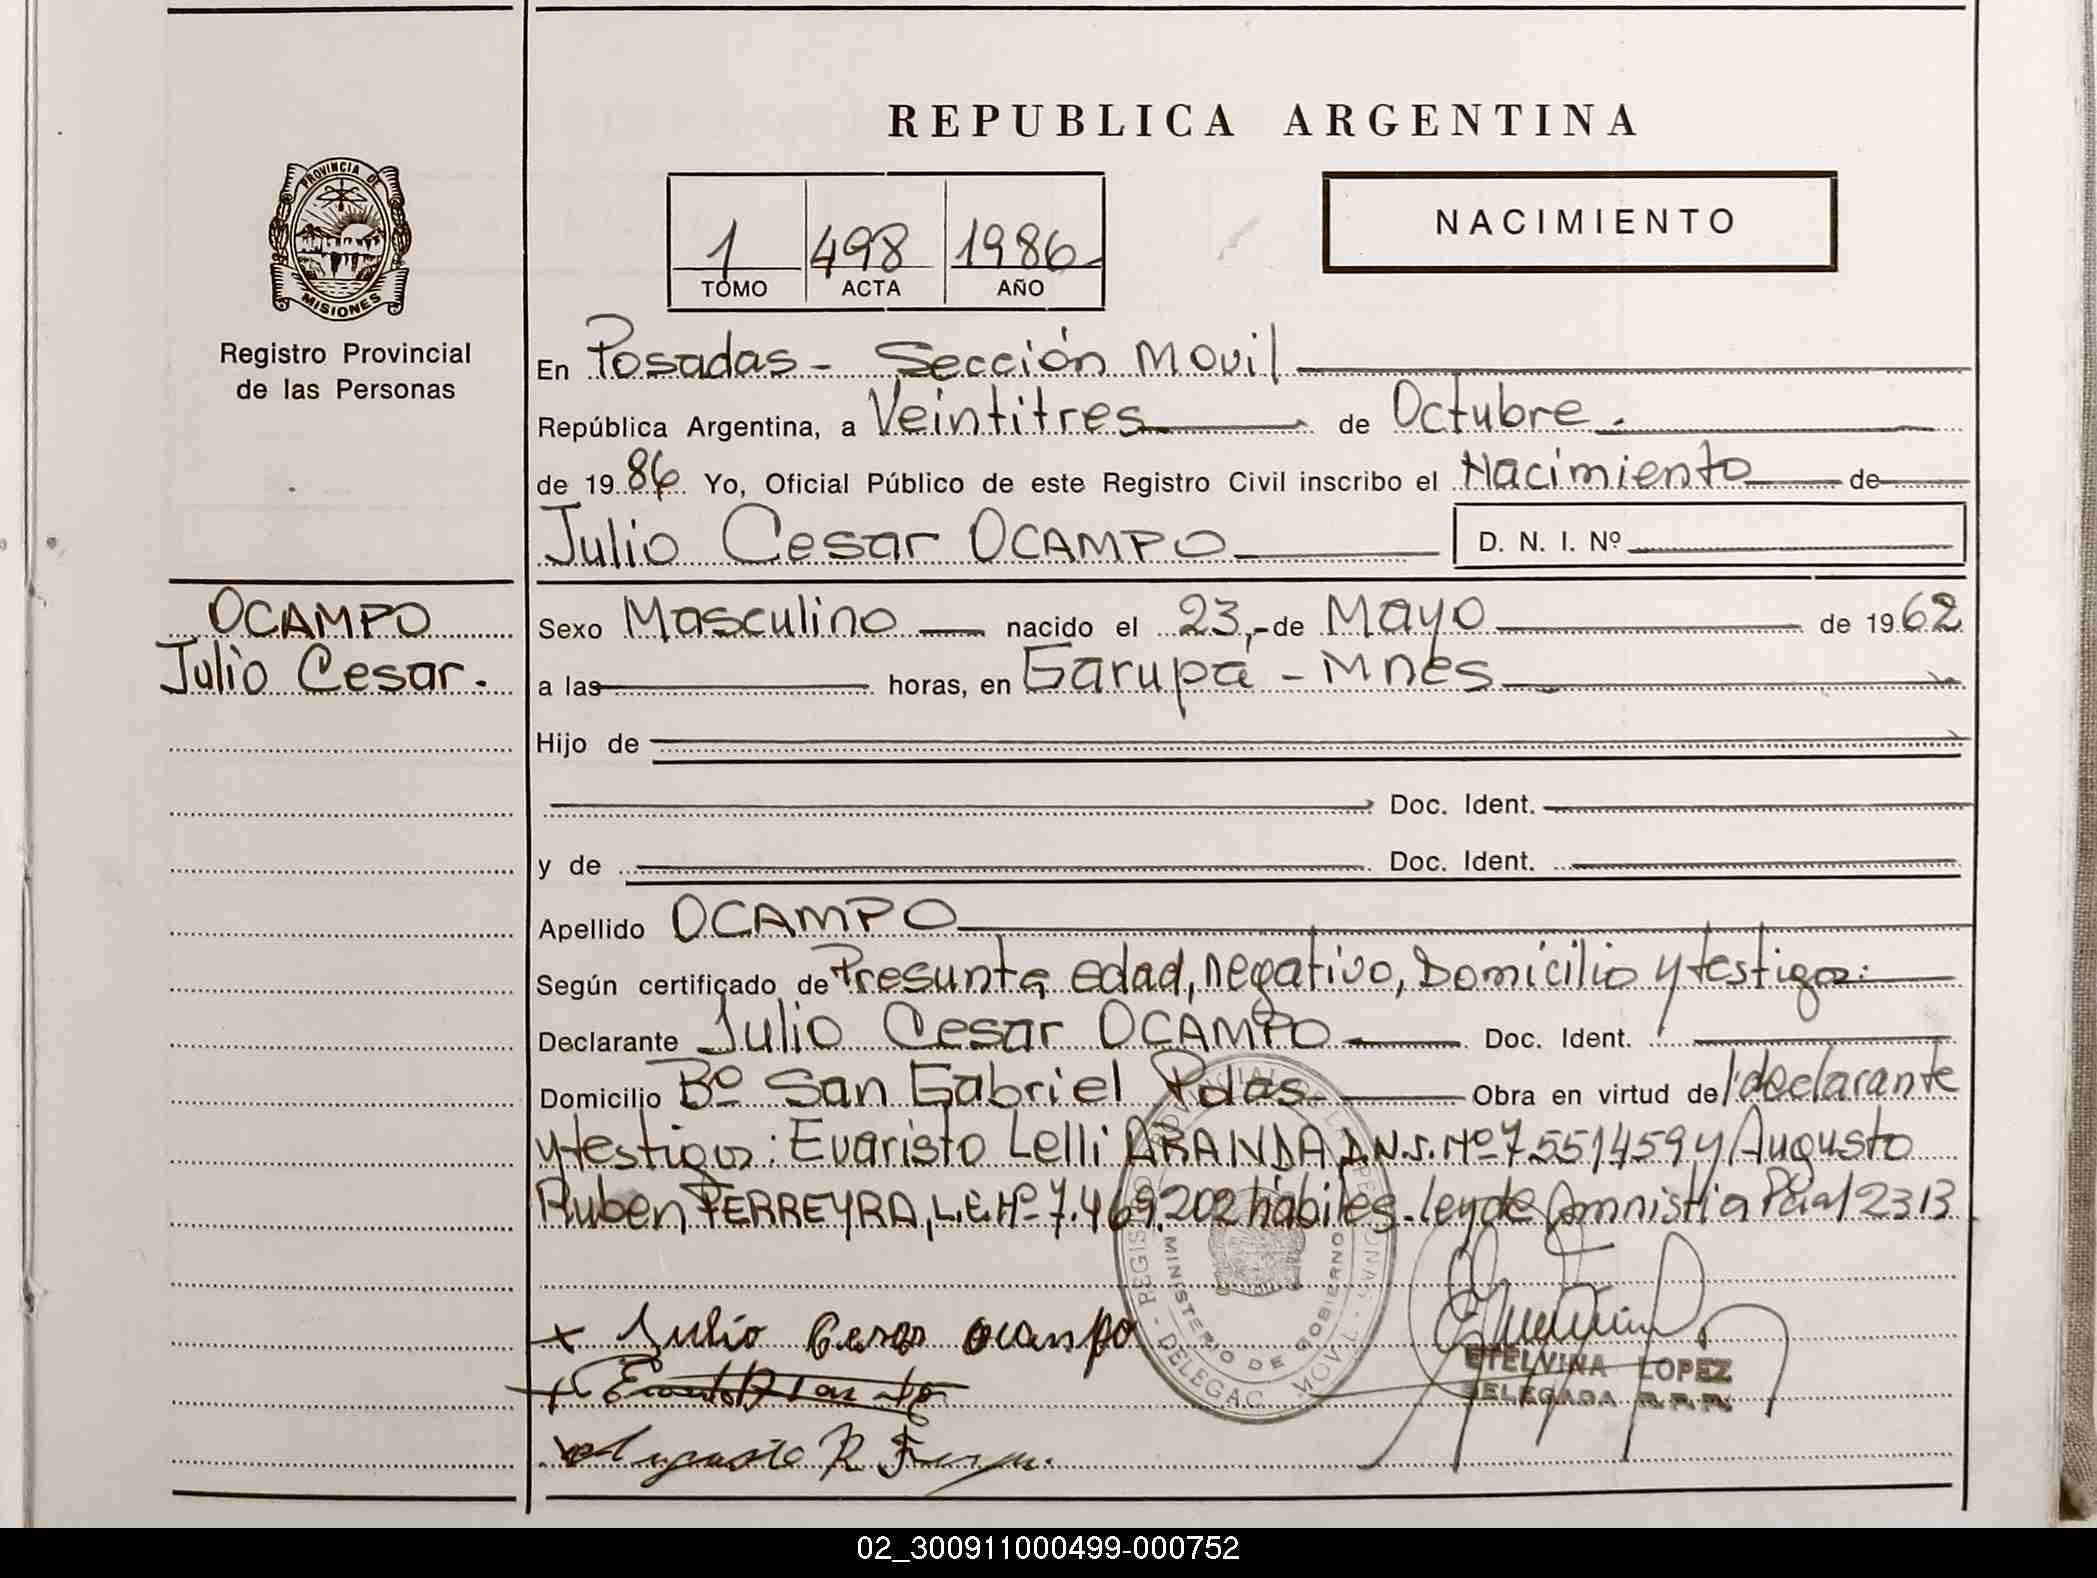 REPUBLICA ARGENTINA
PROVINCIA DE
MISIONES
Registro Provincial
de las Personas
1 498 1986
TOMO ACTA AÑO
NACIMIENTO
En Posadas - Sección Movil
República Argentina, a Veintitres de Octubre.
de 1986 Yo, Oficial Público de este Registro Civil inscribo el Nacimiento de
Julio Cesar OCAMPO D. N. I. Nº
OCAMPO
Julio Cesar.
Sexo Masculino nacido el 23,- de Mayo de 1962
a las horas, en Garupá - Mnes
Hijo de
Doc. Ident.
y de Doc. Ident.
Apellido OCAMPO
Según certificado de Presunta edad, negativo, Domicilio y testigos:
Declarante Julio Cesar OCAMPO Doc. Ident.
Domicilio Bº San Gabriel Pdas Obra en virtud de l'declarante
y testigos: Evaristo Lelli ARANDA D.N.I. Nº 7551459 y Augusto
Ruben FERREYRA, L.E. Nº 7.469.202 hábiles. ley de Amnistia Pcial 2313
MINISTERIO DE GOBIERNO
DELEGAC. MOVIL
Julio Cesar Ocampo
Augusto R
ETELVINA LOPEZ
DELEGADA R.P.P.
02_300911000499-000752